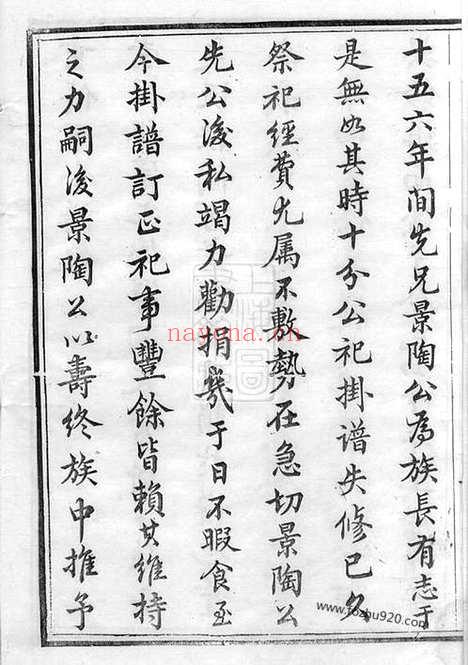 十五六年间先兄景陶公為族長有志于
是無如其時十分公祀掛譜失修已久
祭祀經費尤属不敷勢在急切景陶公
先公後私竭力勸捐幾于日不暇食至
今掛譜訂正祀事豐餘皆賴其維持
之力嗣後景陶公以壽终族中推予
nayona.cn
www.fozhu920.com